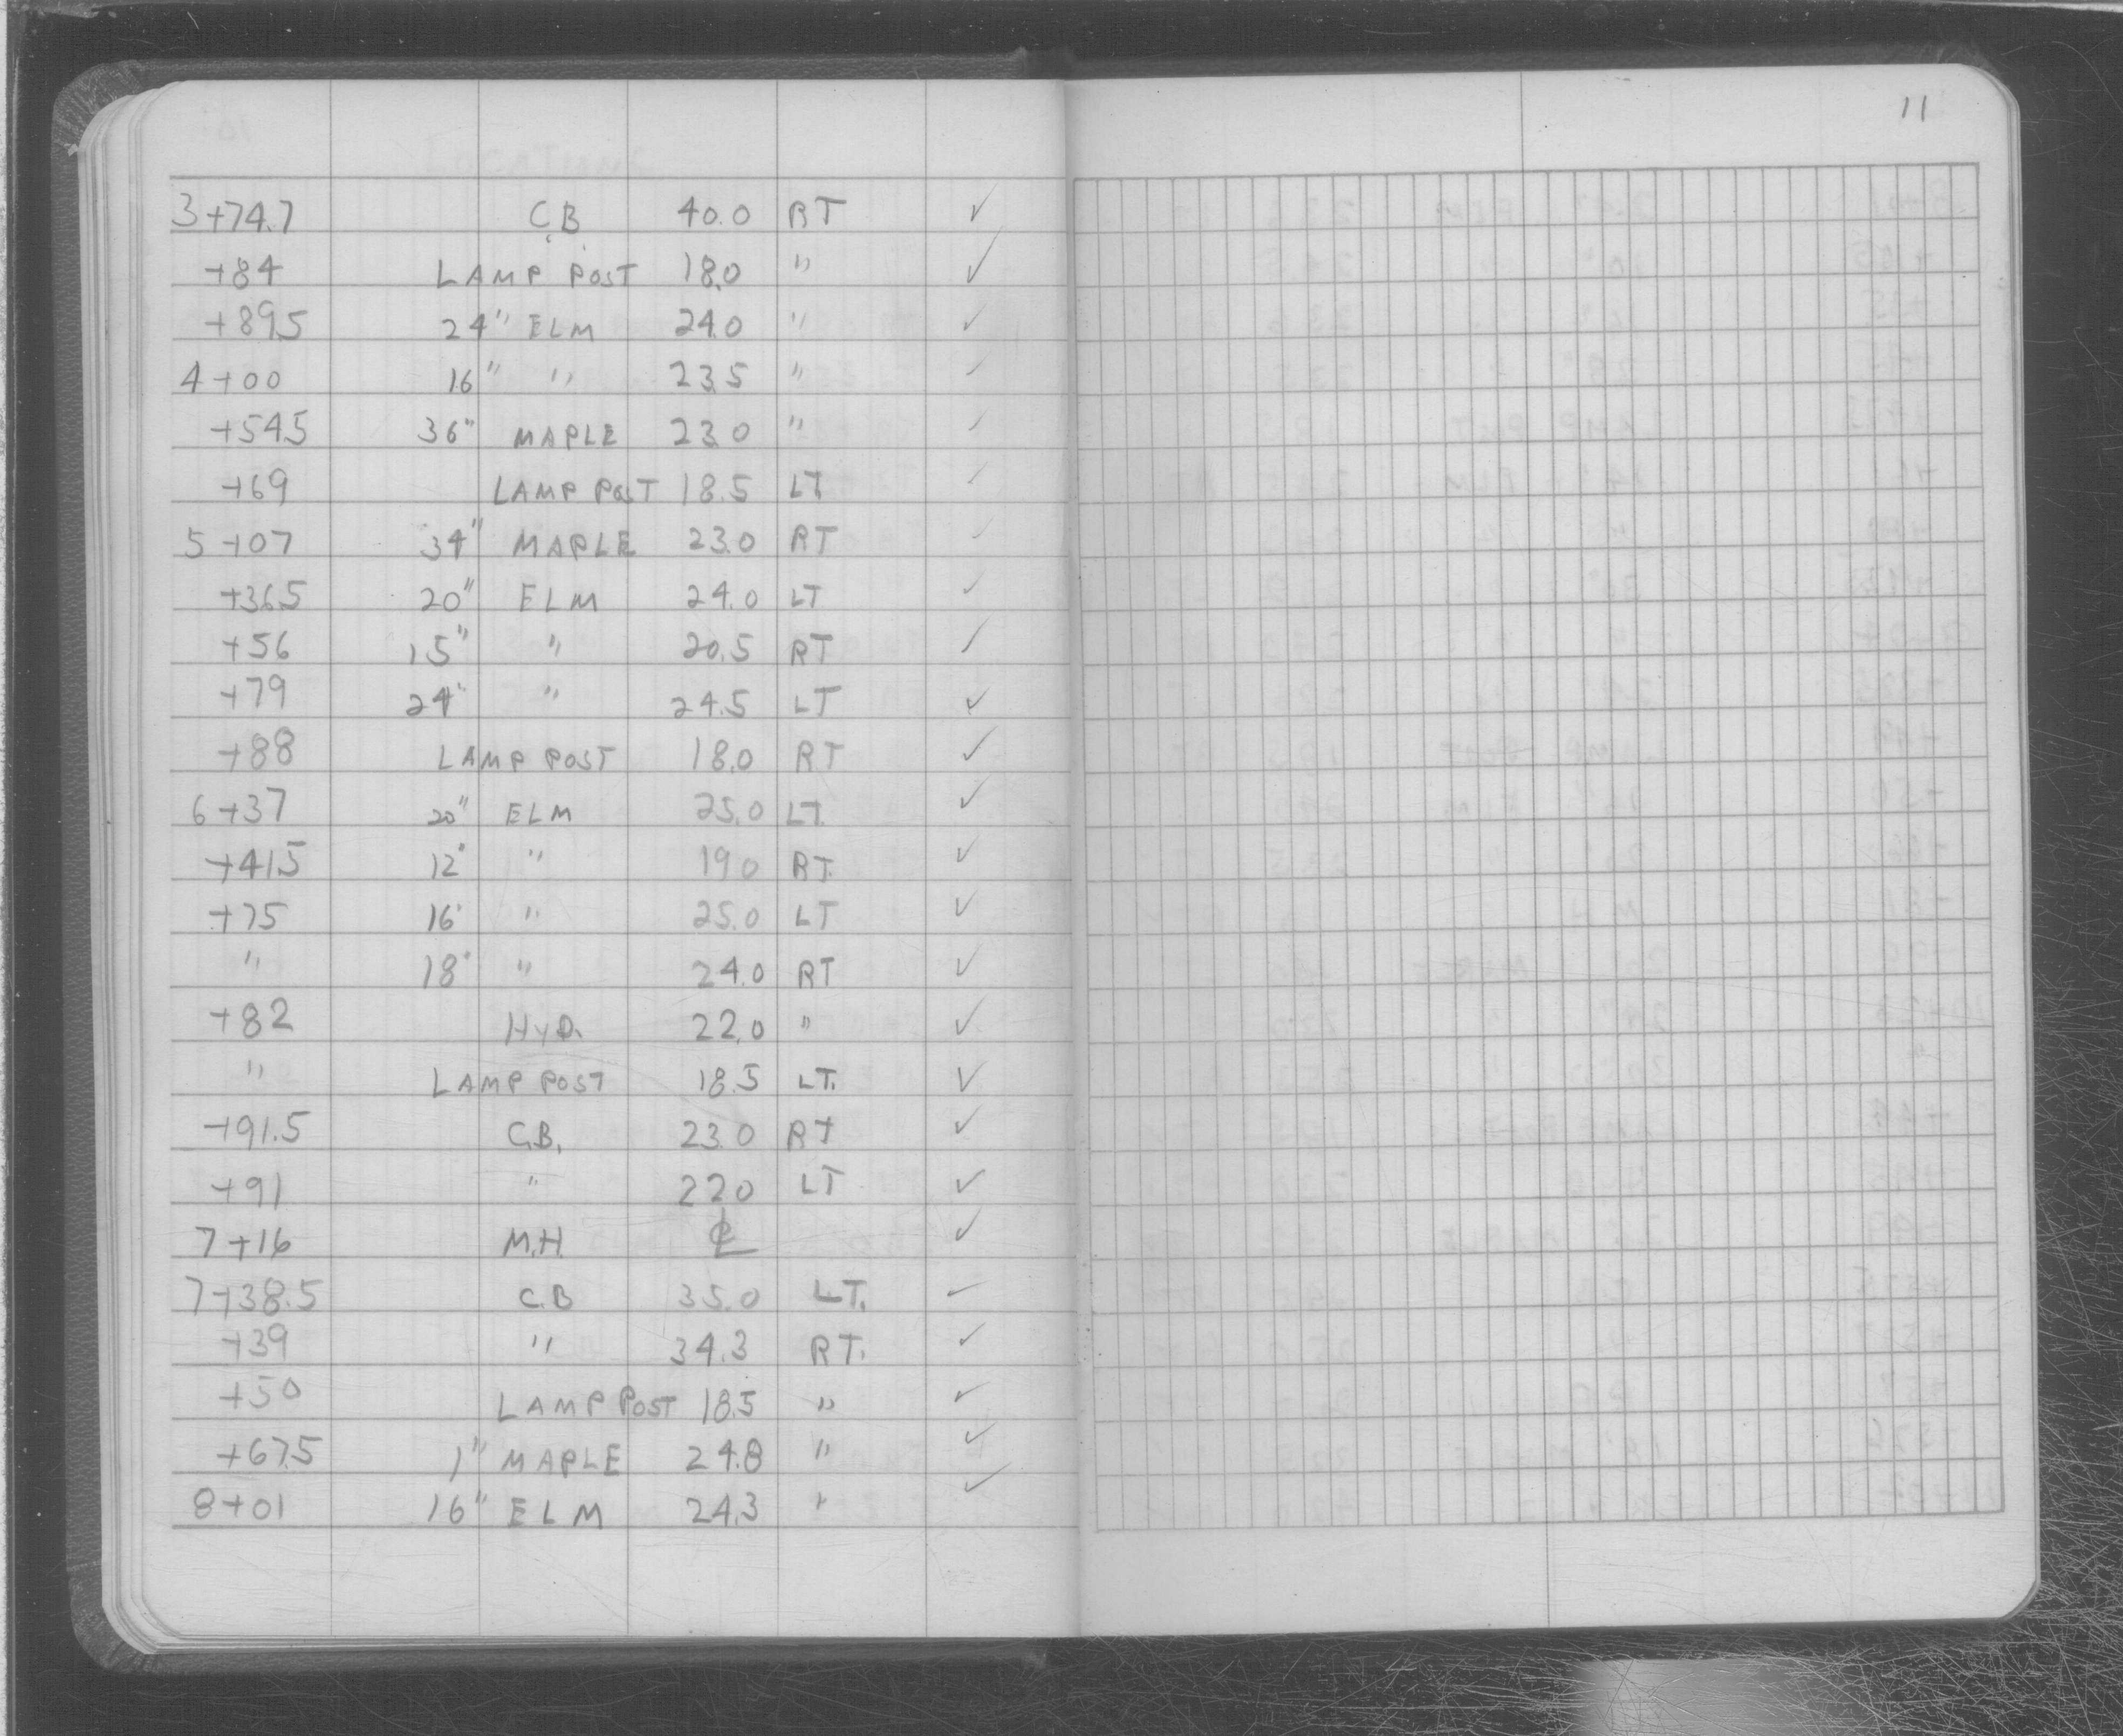 11
3+74.7 C.B. 40.0 RT ✓
+84 LAMP POST 18.0 " ✓
+89.5 24" ELM 24.0 " ✓
4+00 16" " 23.5 " ✓
+54.5 36" MAPLE 23.0 " ✓
+69 LAMP POST 18.5 LT ✓
5+07 34" MAPLE 23.0 RT ✓
+36.5 20" ELM 24.0 LT ✓
+56 15" " 20.5 RT ✓
+79 24" " 24.5 LT ✓
+88 LAMP POST 18.0 RT ✓
6+37 20" ELM 25.0 LT. ✓
+41.5 12" " 19.0 RT. ✓
+75 16" " 25.0 LT ✓
" 18" " 24.0 RT ✓
+82 HYD. 22.0 " ✓
" LAMP POST 18.5 LT. ✓
+91.5 C.B. 23.0 RT ✓
+91 " 22.0 LT ✓
7+16 M.H. ℄ ✓
7+38.5 C.B 35.0 LT. ✓
+39 " 34.3 RT. ✓
+50 LAMP POST 18.5 " ✓
+67.5 1" MAPLE 24.8 " ✓
8+01 16" ELM 24.3 " ✓